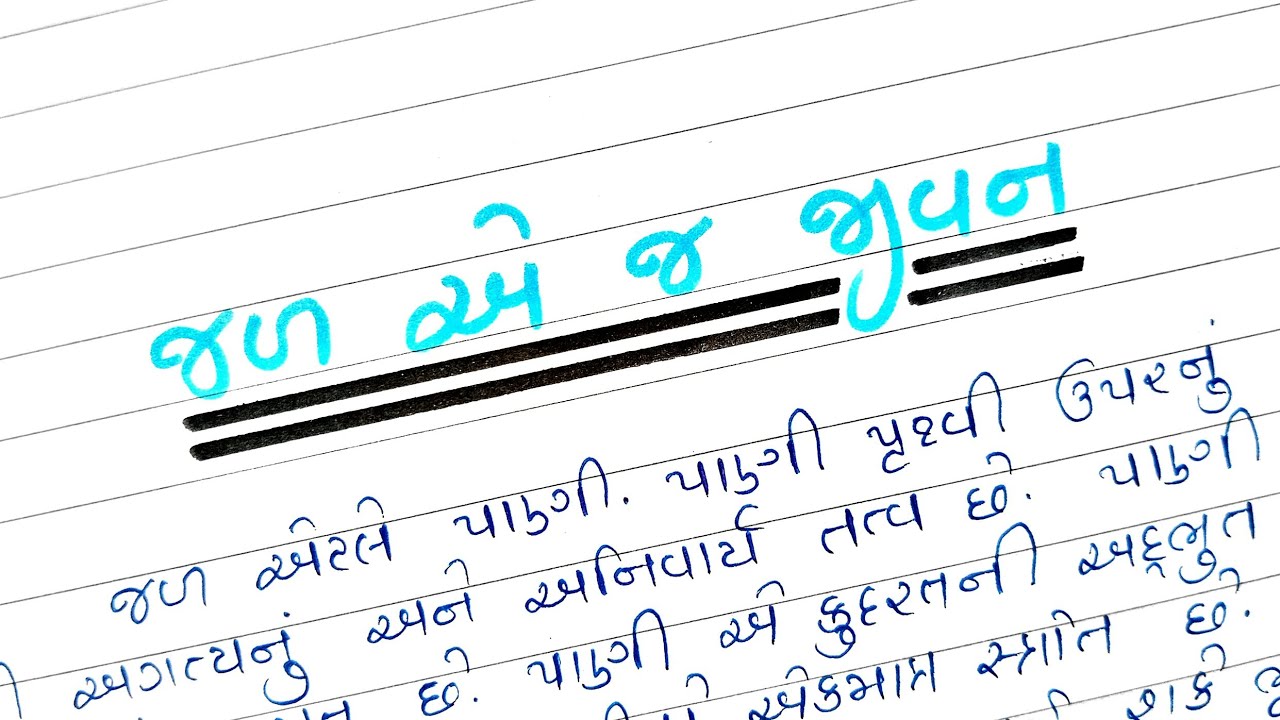 જળ એ જ જીવન
જળ એટલે પાણી. પાણી પૃથ્વી ઉપરનું
અગત્યનું અને અનિવાર્ય તત્વ છે. પાણી
છે. પાણી એ કુદરતની અદ્ભુત
એકમાત્ર સ્ત્રોત છે.
શકે